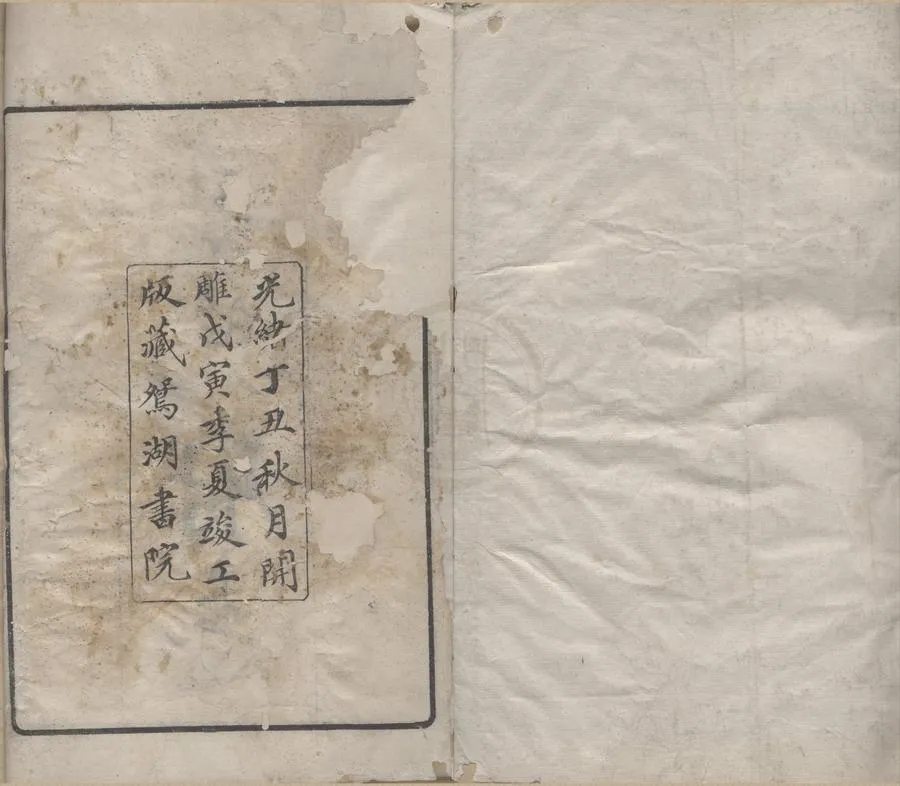 光緒丁丑秋月開
雕戊寅季夏竣工
版藏鴛湖書院